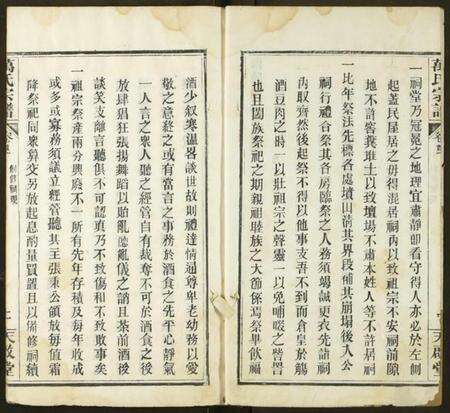 萬氏宗譜
一祠堂乃冠冕之地理宜肅靜即看守得人亦必於左側
起蓋民屋居之毋得混居祠內以致祖宗不安祠前隙
地不許窖糞堆土以致壇場不肅本姓人等不許居祠
一比年祭法先標各處墳山清其界段補其崩塌後入公
祠行禮合祭其各房臨祭之人務須竭誠更衣先詣祠
內取齊然後起祭不得以他事支吾不到而倉皇於觴
酒豆肉之時一以壯祖宗之聲靈一以免哺啜之訾詈
也且闔族祭祀之期親祖睦族之大節係焉祭畢飲福
天啟堂
酒少叙寒溫畧談世故則禮達情通尊卑老幼務以愛
敬之意絡之或有當言之事務於酒食之先平心靜氣
一人言之衆人聽之經管自有裁奪不可於酒食之後
放肆猖狂張揚舞蹈以貽亂德亂儀之誚且茶前酒後
談笑支離言聽俱不可認真乃不致傷和不致敗事矣
一祖宗祭產兩分興廢不一所有先年存積及每年收成
或多或寡務須議立經管聽其主張秉公領放每值霜
降祭祀同衆算交另放起息酌量買置且以備修祠續
萬氏宗譜
天啟堂